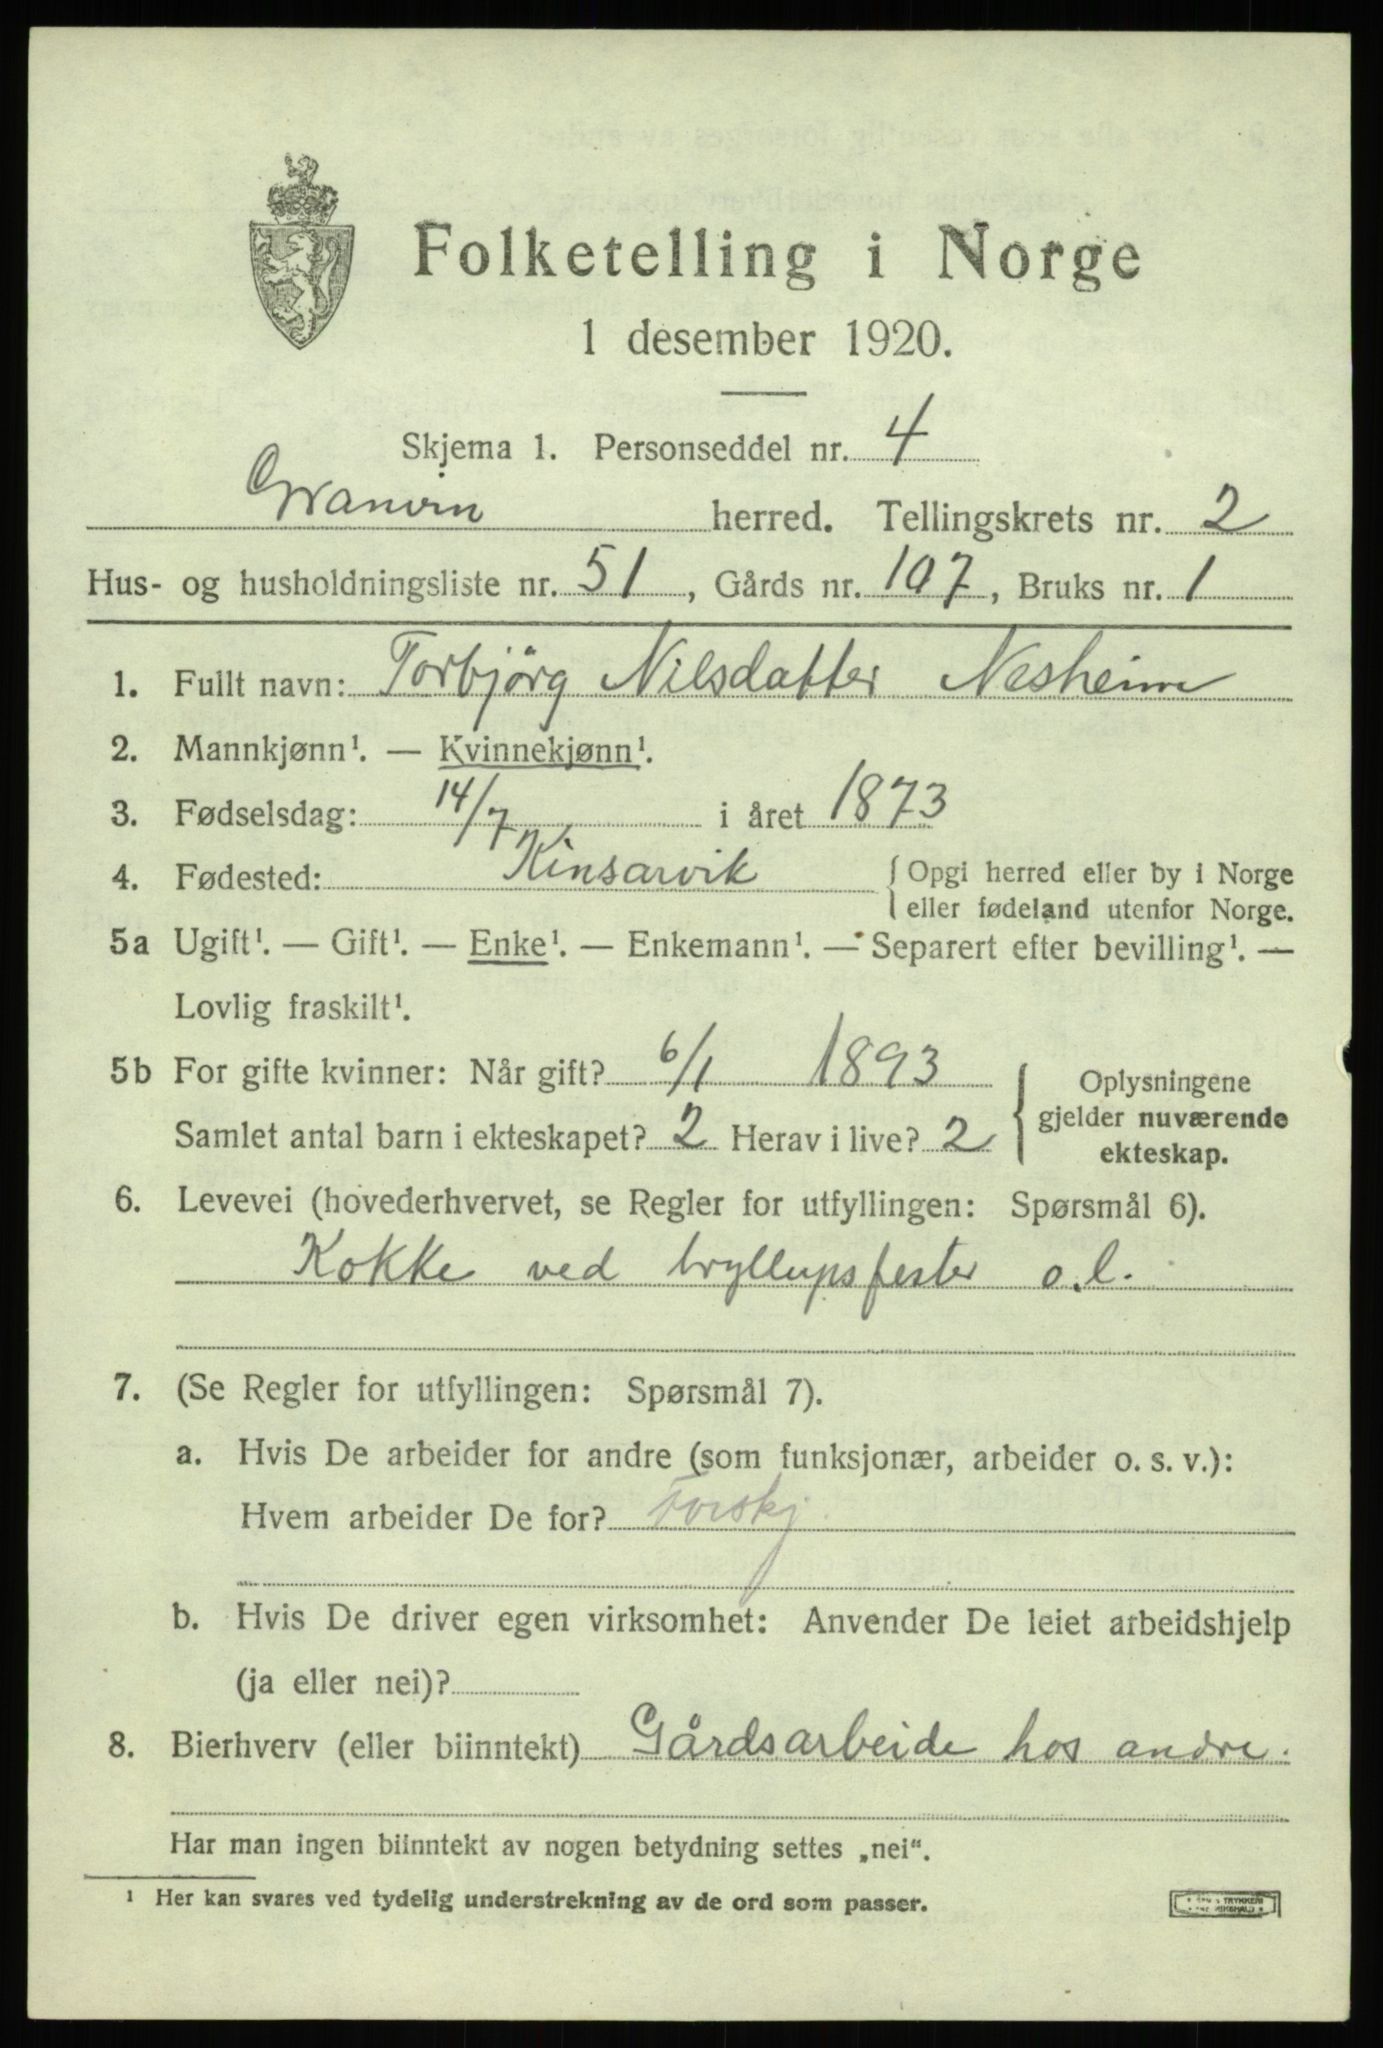 Folketelling i Norge
1 desember 1920.
Skjema 1. Personseddel nr. 4
Granvin herred. Tellingskrets nr. 2
Hus- og husholdningsliste nr. 51, Gårds nr. 107, Bruks nr. 1
1. Fullt navn: Torbjörg Nilsdatter Nesheim
2. Mannkjønn¹. — Kvinnekjønn¹.
3. Fødselsdag: 14/7 i året 1873
4. Fødested: Kinsarvik { Opgi herred eller by i Norge
eller fødeland utenfor Norge.
5a Ugift¹. — Gift¹. — Enke¹. — Enkemann¹. — Separert efter bevilling¹. —
Lovlig fraskilt¹.
5b For gifte kvinner: Når gift? 6/1 1893
Samlet antal barn i ekteskapet? 2 Herav i live? 2
{ Oplysningene
gjelder nuværende
ekteskap.
6. Levevei (hovederhvervet, se Regler for utfyllingen: Spørsmål 6).
Kokke ved bryllupsfester o.l.
7. (Se Regler for utfyllingen: Spørsmål 7).
a. Hvis De arbeider for andre (som funksjonær, arbeider o. s. v.):
Hvem arbeider De for? Forskj.
b. Hvis De driver egen virksomhet: Anvender De leiet arbeidshjelp
(ja eller nei)?
8. Bierhverv (eller biinntekt) Gårdsarbeide hos andre.
Har man ingen biinntekt av nogen betydning settes „nei“.
¹ Her kan svares ved tydelig understrekning av de ord som passer.